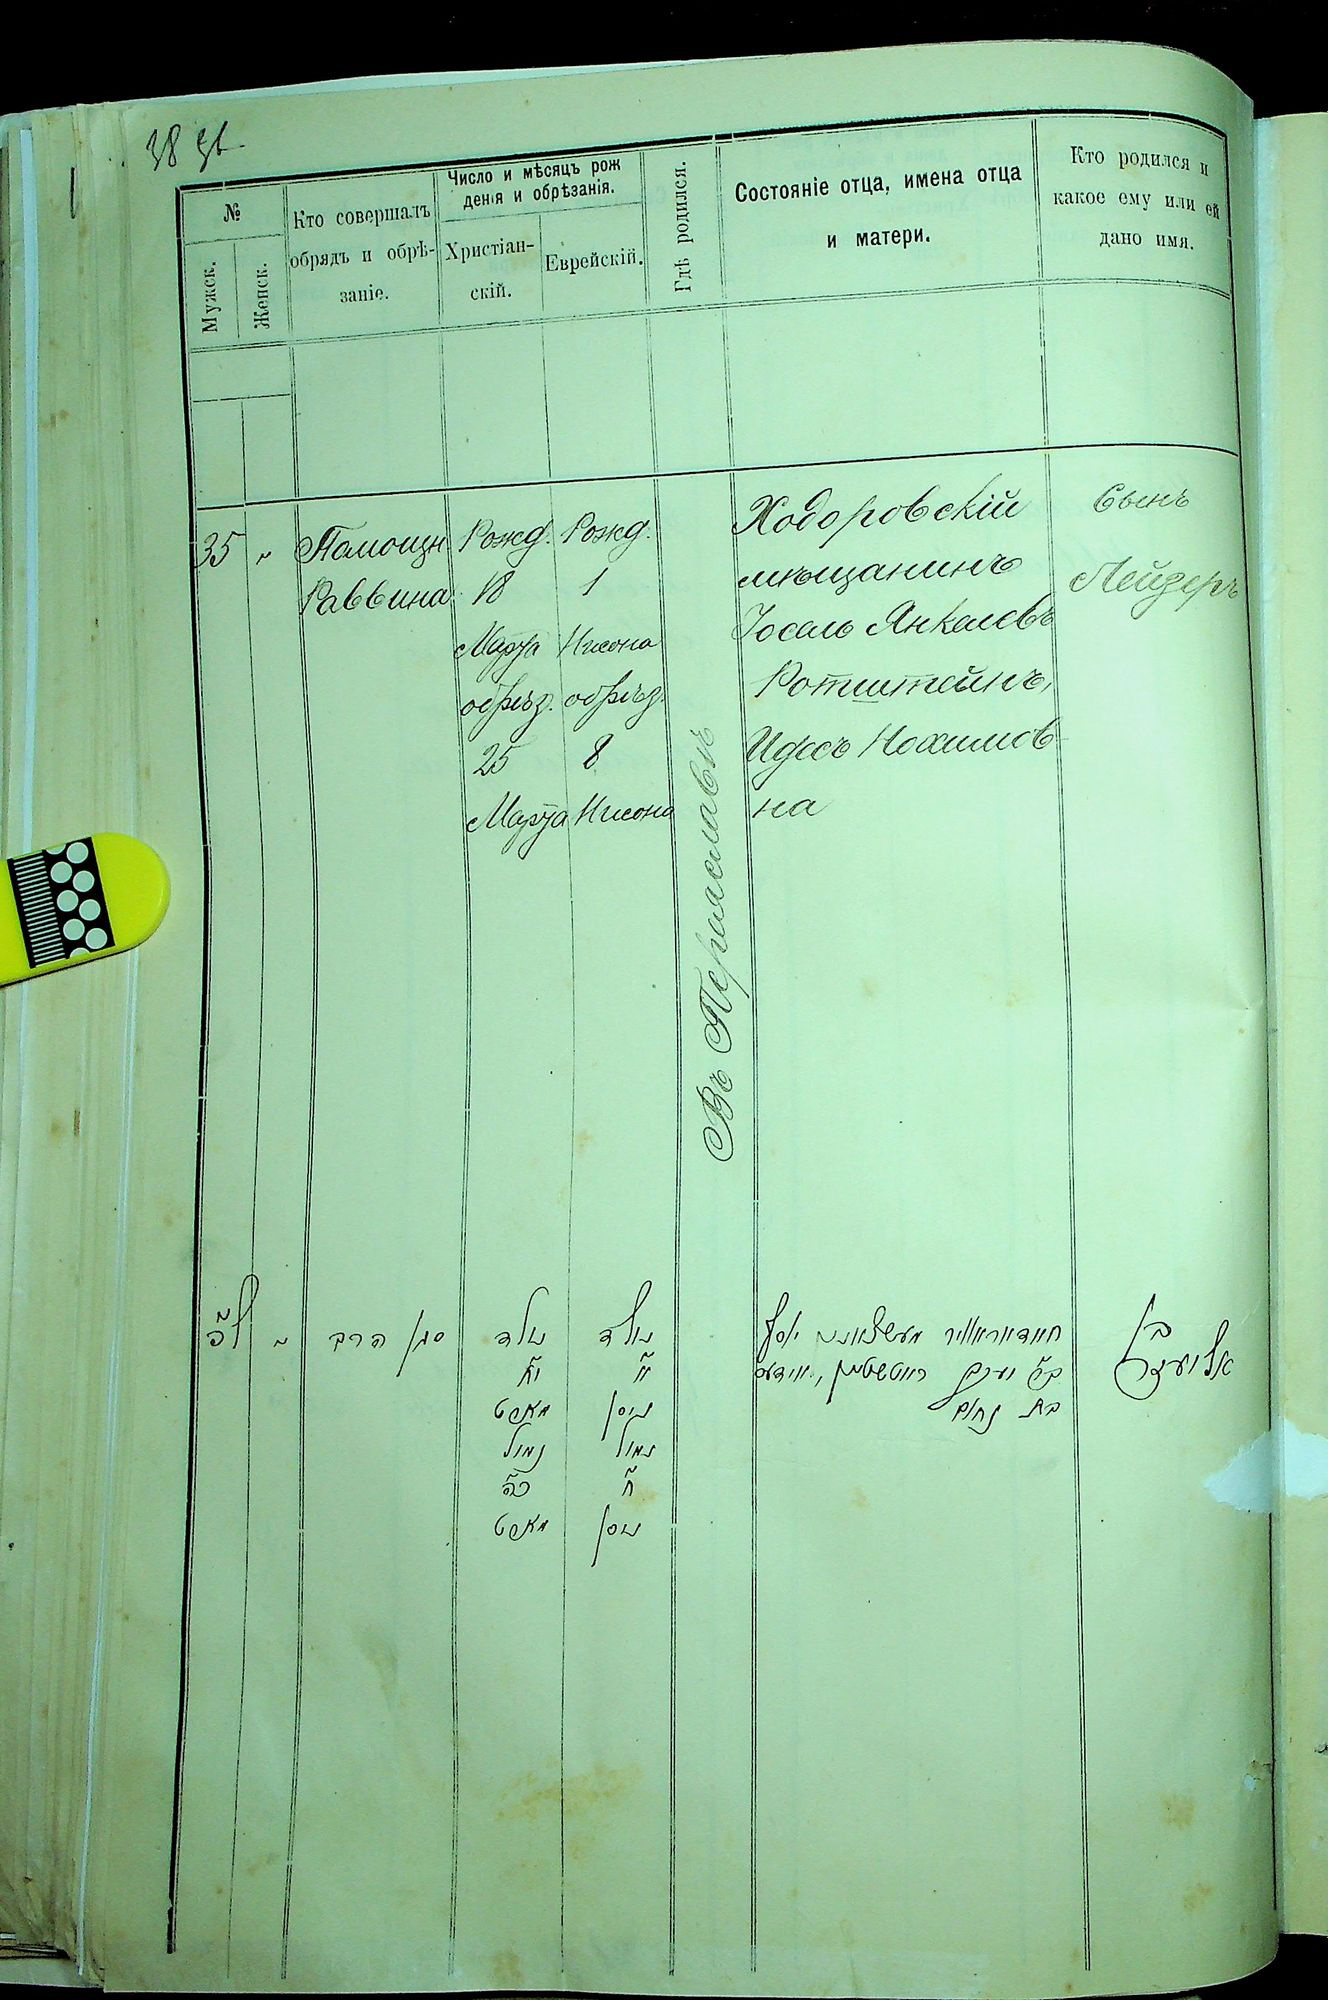 38 зв.
№
Мужск.
Женск.
Кто совершалъ
обрядъ и обрѣ-
заніе.
Число и мѣсяцъ рож
денія и обрѣзанія.
Христіан-
скій.
Еврейскій.
Гдѣ родился.
Состояніе отца, имена отца
и матери.
Кто родился и
какое ему или ей
дано имя.
35 "
Помощн
Раввина
Рожд.
18
Марта
обрѣз.
25
Марта
Рожд.
1
Нисона
обрѣз.
8
Нисона
Въ Переяславѣ
Ходоровскій
мѣщанинъ
Іосель Янкелевъ
Ротштейнъ,
Идесъ Нохимов-
на
Сынъ
Лейзеръ
ל״ה "
סגן הרב
נולד
י״ח
מארט
נמול
כ״ה
מארט
נולד
ניסן
נמול
ח׳
ניסן
יוסף
יעקב ראטשטיין,
בת נחום
בן
אליעזר